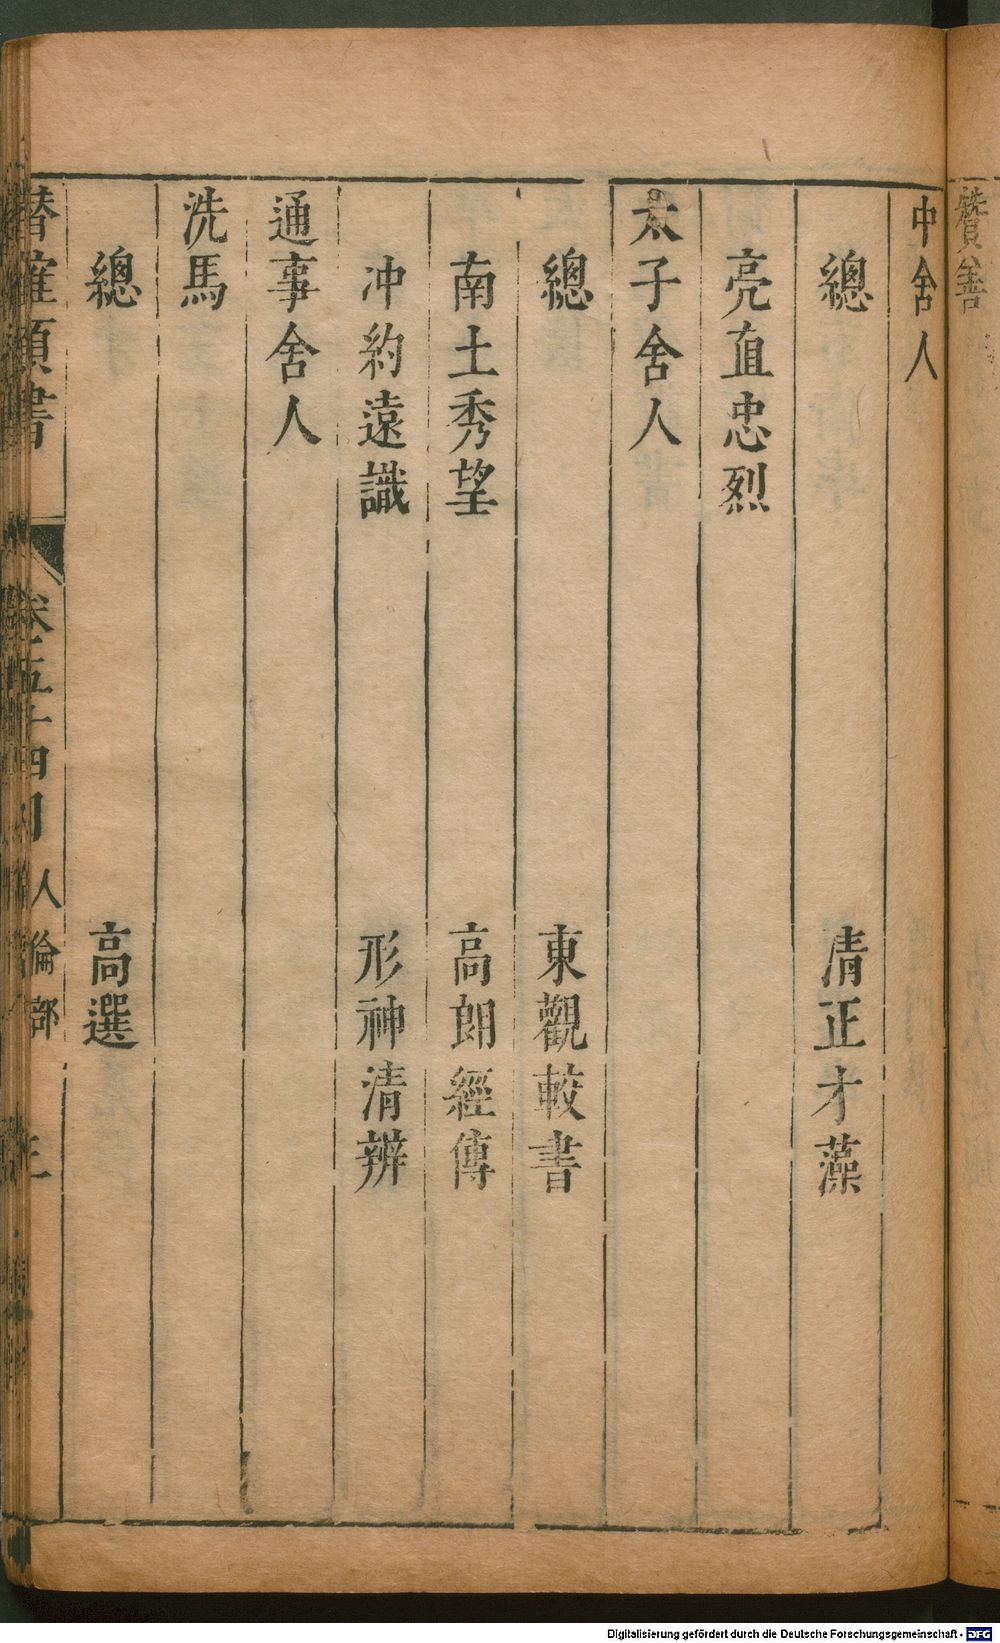 贊善
中舍人
總 清正才藻
亮直忠烈
太子舍人
總 東觀較書
南土秀望 高朗經傳
冲約遠識 形神清辨
通事舍人
洗馬
總 高選
卷五十四目 人倫部
Digitalisierung gefördert durch die Deutsche Forschungsgemeinschaft - DFG